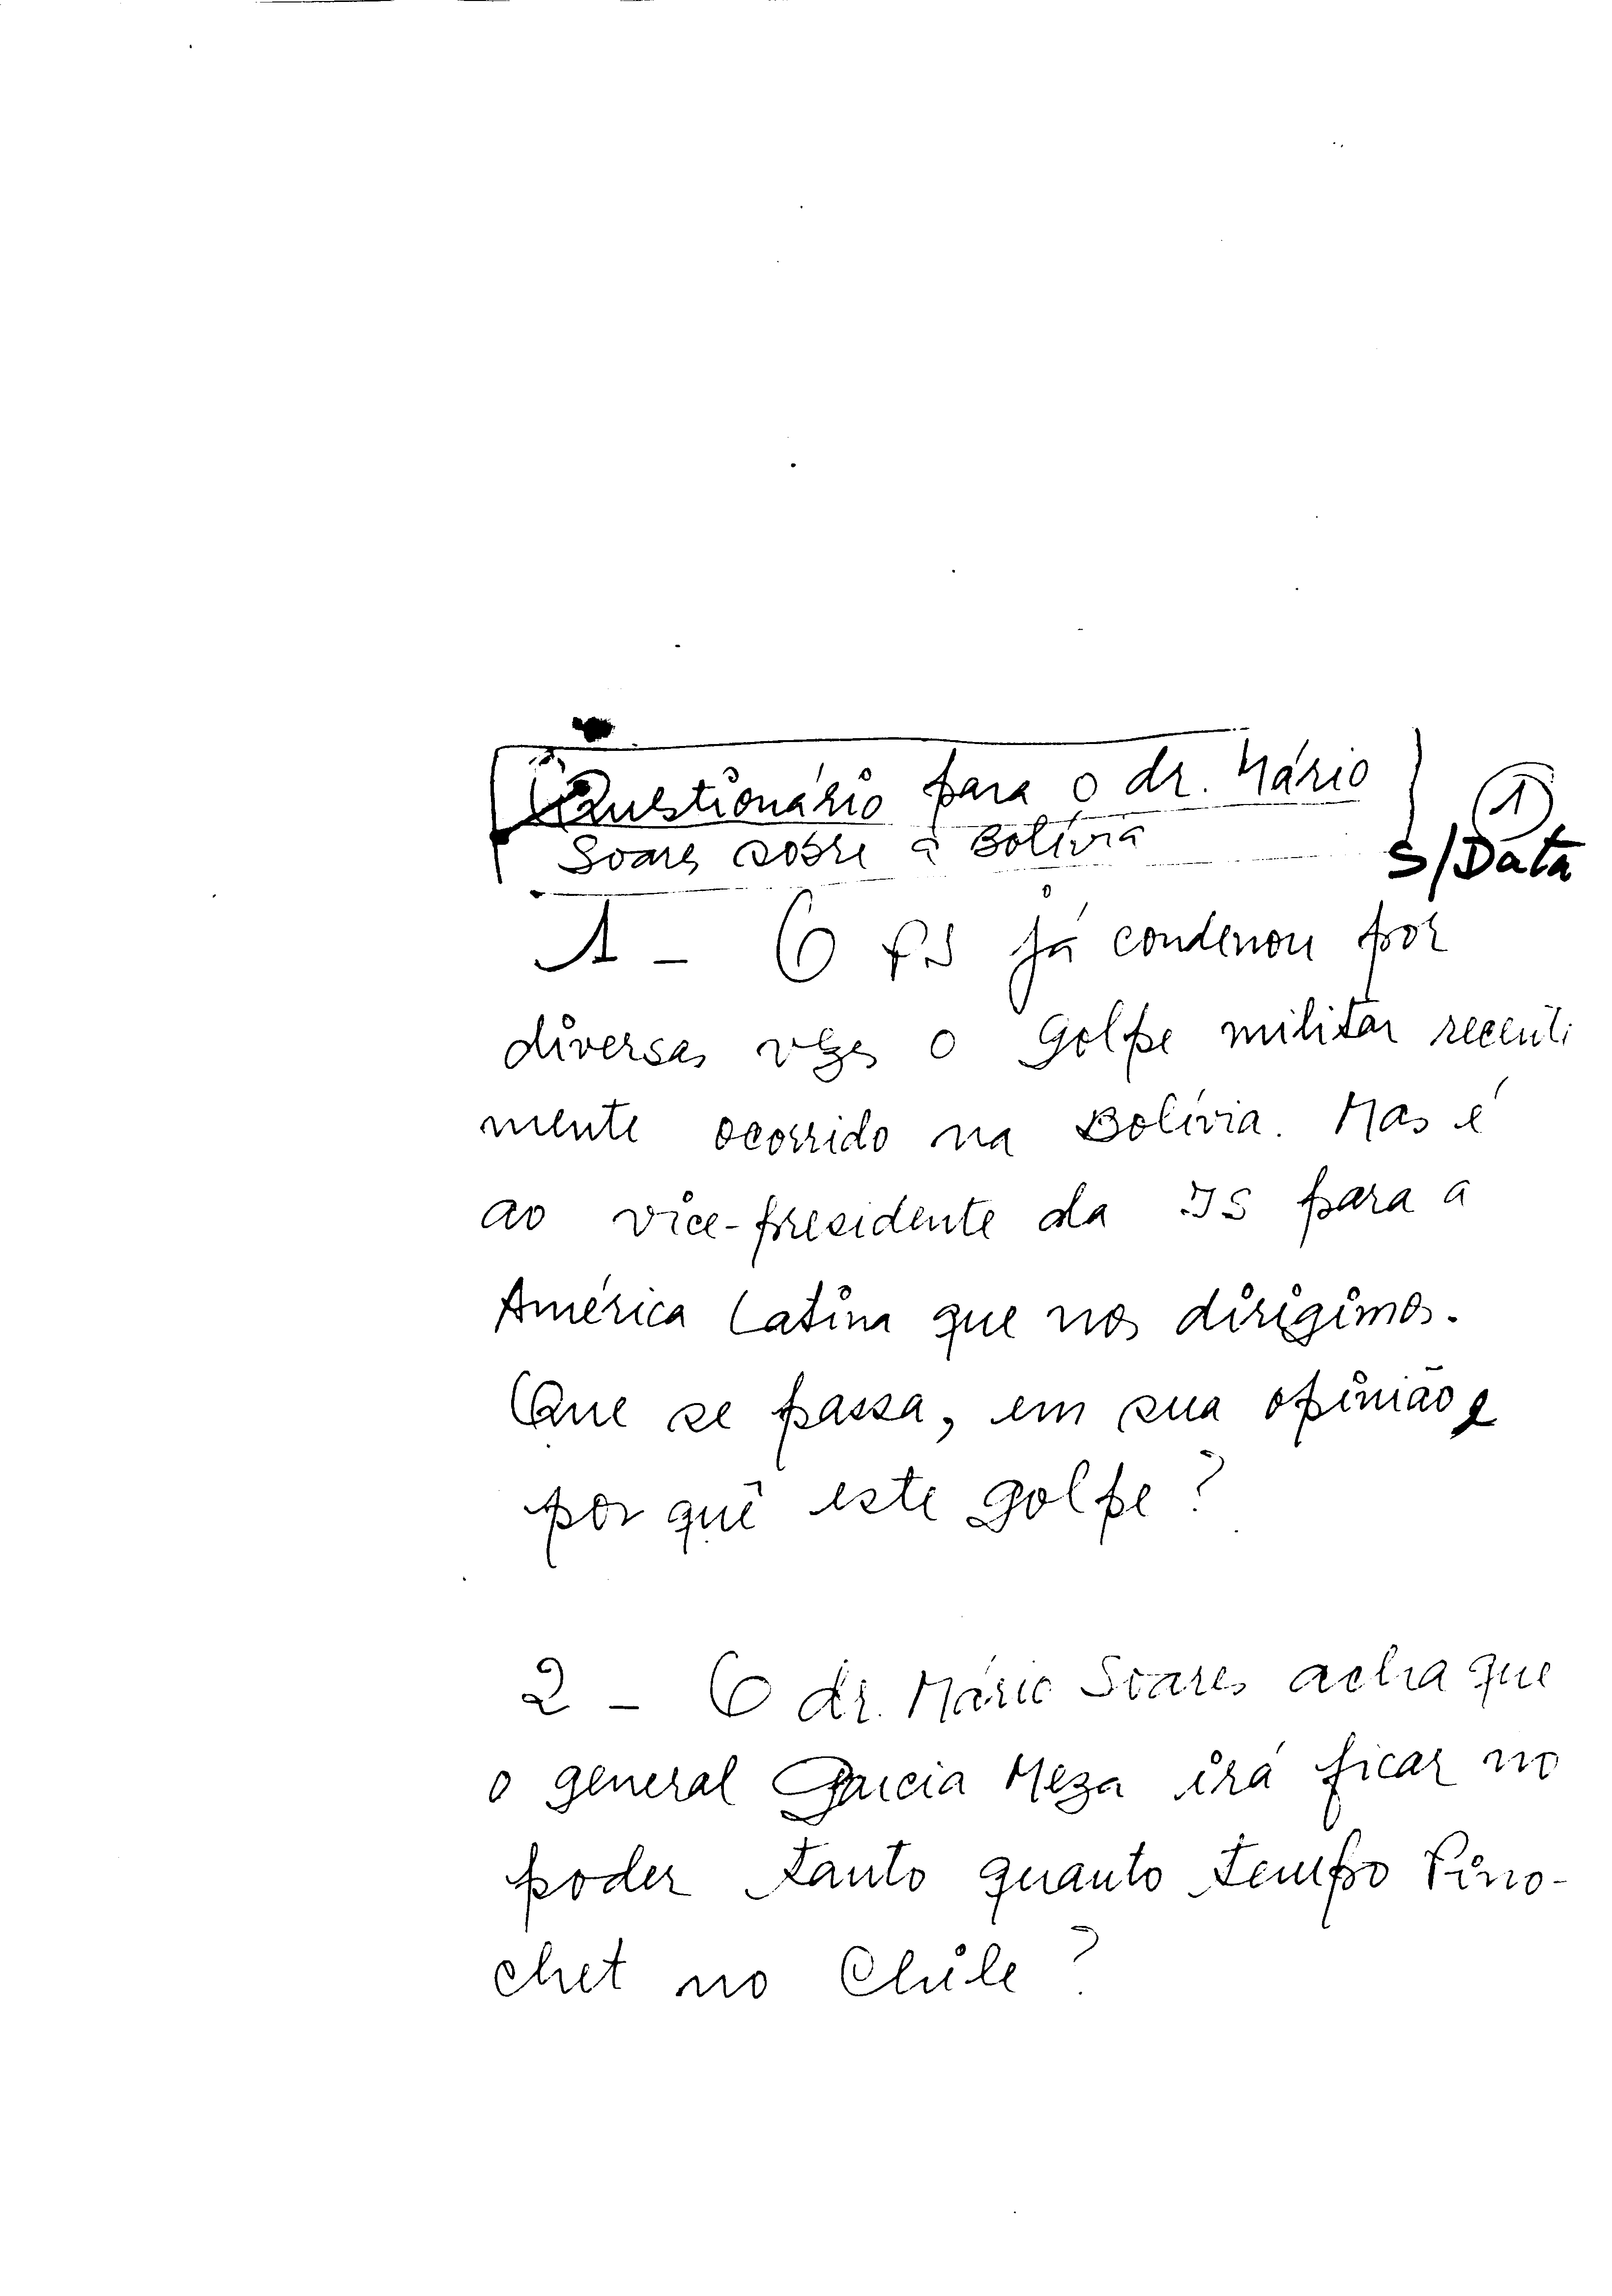 Questionário para o dr. Mário
Soares sobre a Bolívia
1
S/Data
1 - O PS já condenou por
diversas vezes o golpe militar recente
mente ocorrido na Bolívia. Mas é
ao vice-presidente da IS para a
América Latina que nos dirigimos.
Que se passa, em sua opinião e
por quê este golpe?
2 - O dr. Mário Soares acha que
o general Garcia Meza irá ficar no
poder tanto quanto tempo Pino-
chet no Chile?